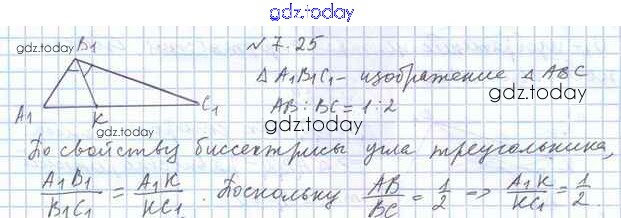 gdz.today
gdz.today
B1
№ 7.25
△ A1B1C1 - изображение △ ABC
gdz.today
A1
K
C1
AB : BC = 1:2
gdz.today
gdz.today
По свойству биссектрисы угла треугольника,
A1B1/B1C1 = A1K/KC1. Поскольку AB/BC = 1/2 => A1K/KC1 = 1/2.